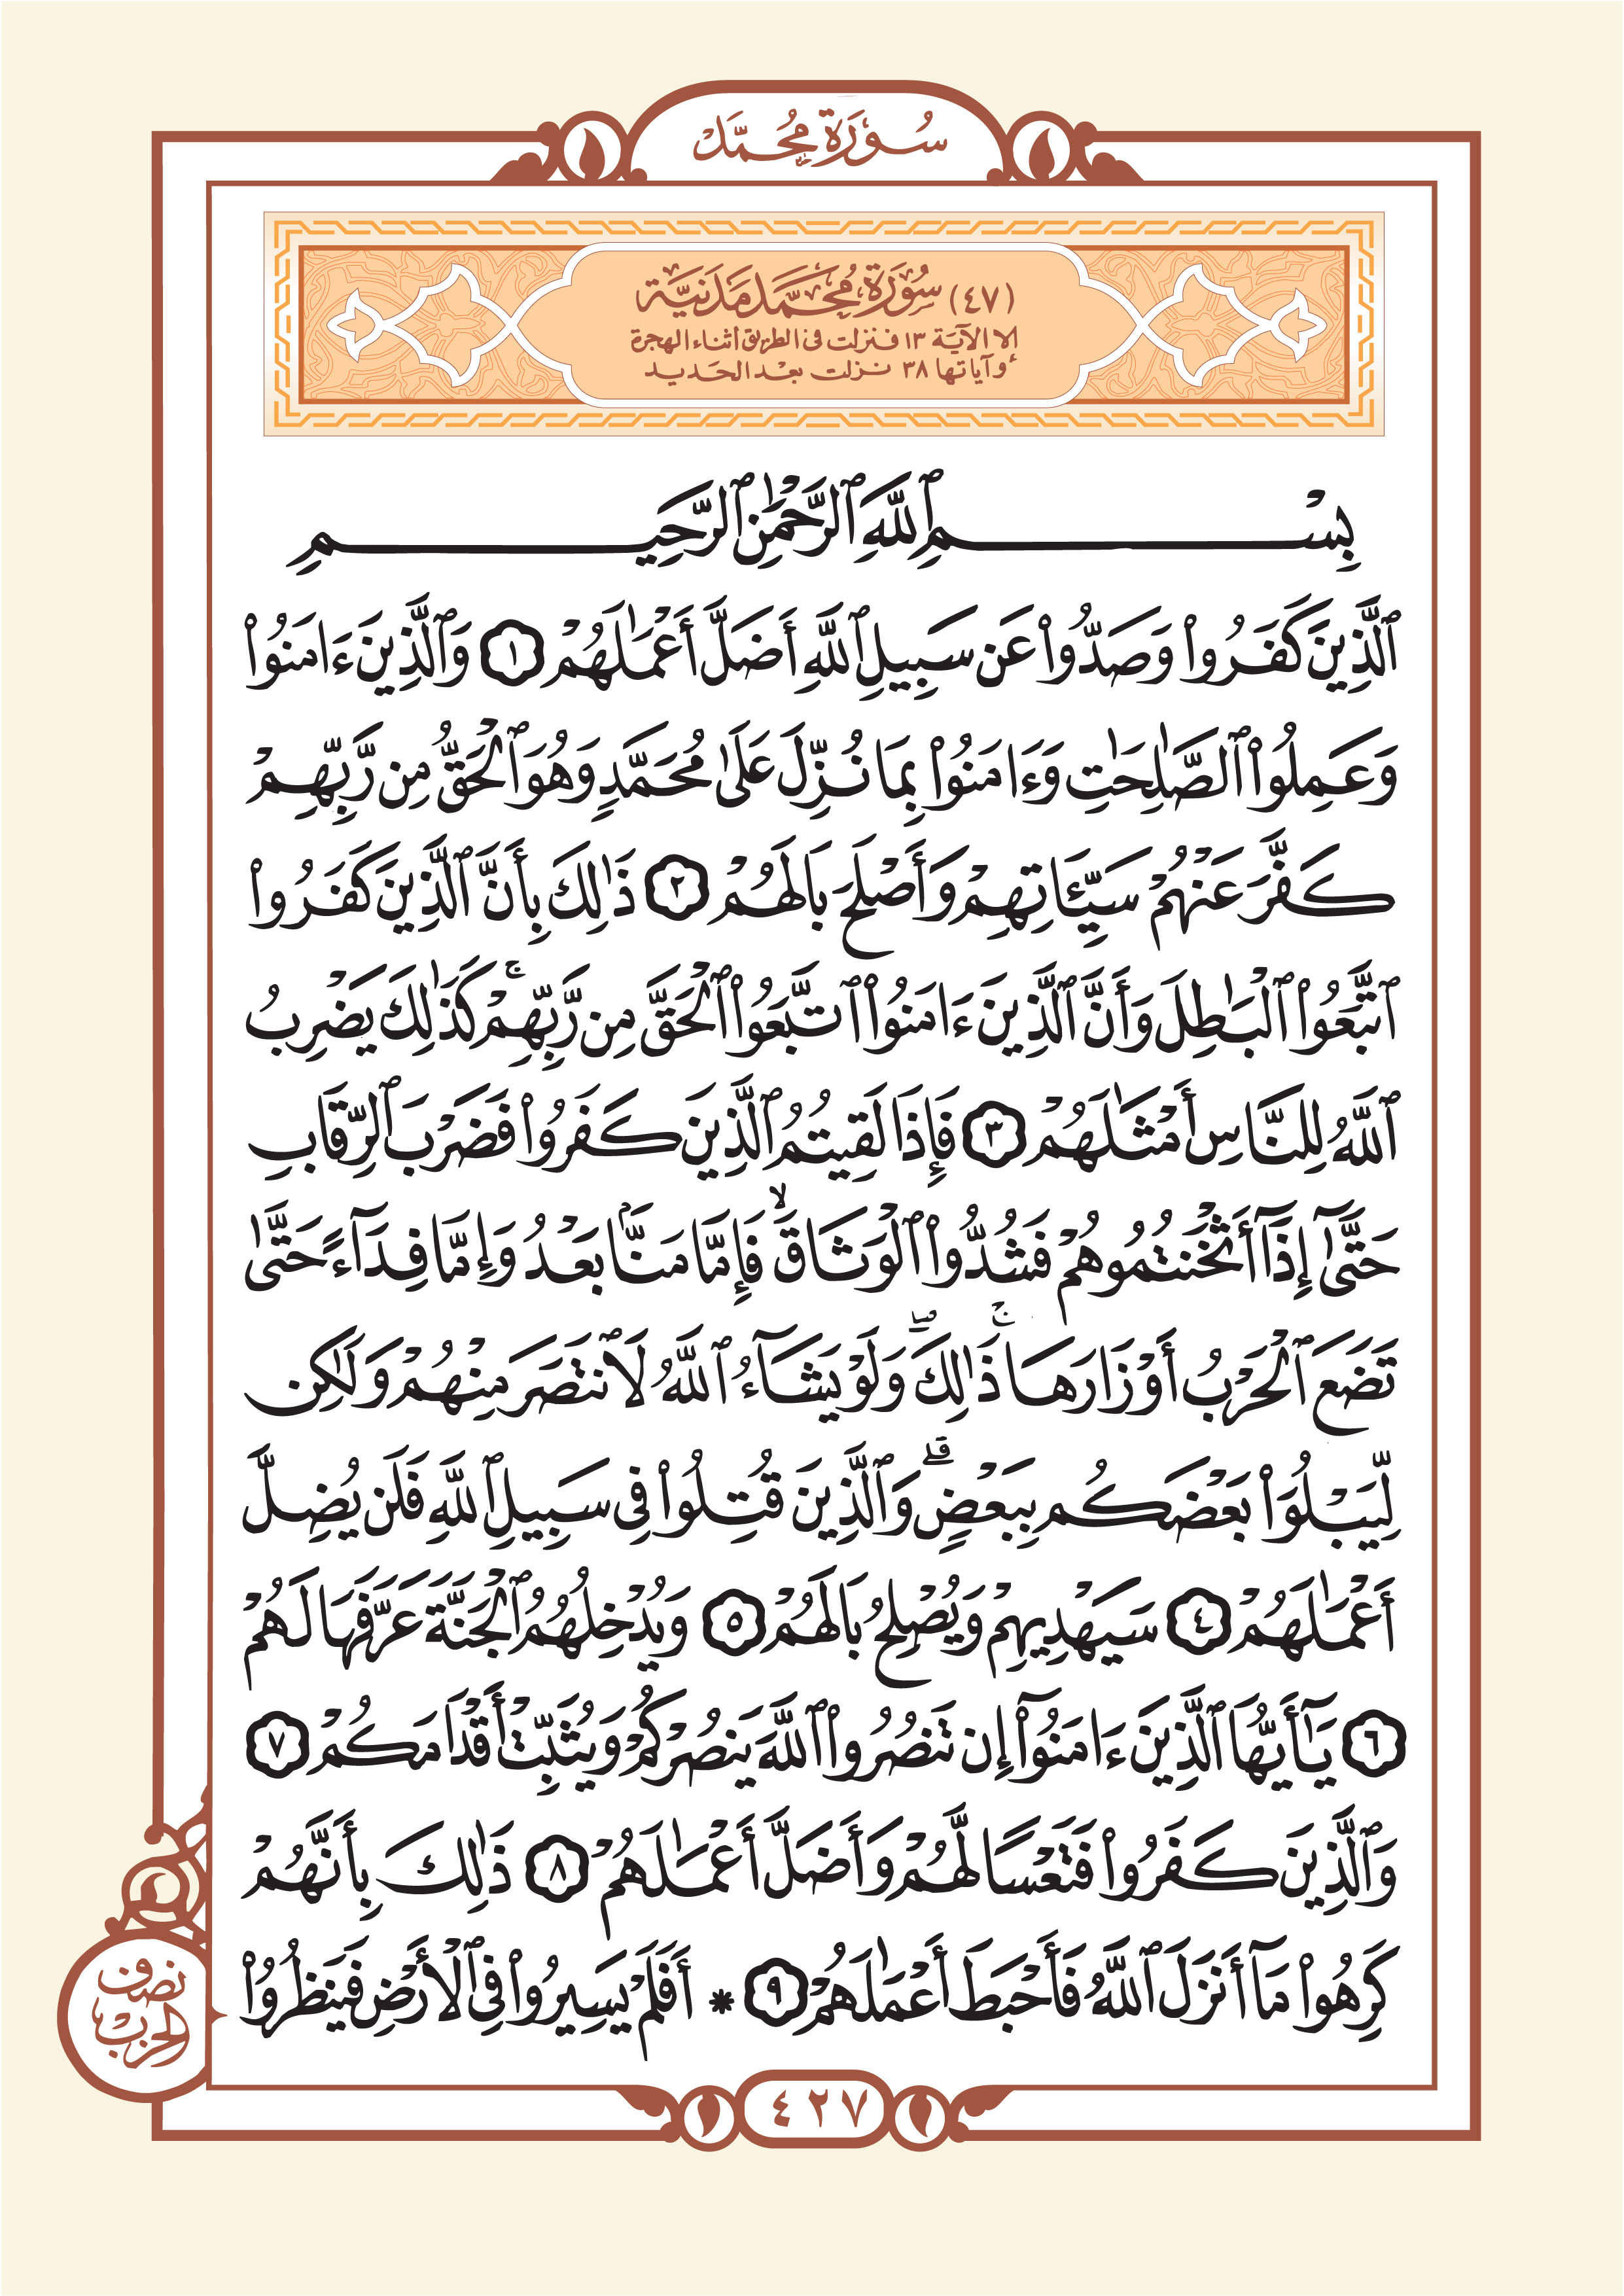 سُورَةُ مُحَمَّدٍ
(٤٧) سُورَةُ مُحَمَّدٍ مَدَنِيَّة
إلا الآيَة ١٣ فنزلت فى الطريق أثناء الهجرة
وآياتها ٣٨ نزلت بعْد الحَديد
بِسْمِ ٱللَّهِ ٱلرَّحْمَٰنِ ٱلرَّحِيمِ
ٱلَّذِينَ كَفَرُوا۟ وَصَدُّوا۟ عَن سَبِيلِ ٱللَّهِ أَضَلَّ أَعْمَٰلَهُمْ ١ وَٱلَّذِينَ ءَامَنُوا۟
وَعَمِلُوا۟ ٱلصَّٰلِحَٰتِ وَءَامَنُوا۟ بِمَا نُزِّلَ عَلَىٰ مُحَمَّدٍ وَهُوَ ٱلْحَقُّ مِن رَّبِّهِمْ
كَفَّرَ عَنْهُمْ سَيِّـَٔاتِهِمْ وَأَصْلَحَ بَالَهُمْ ٢ ذَٰلِكَ بِأَنَّ ٱلَّذِينَ كَفَرُوا۟
ٱتَّبَعُوا۟ ٱلْبَٰطِلَ وَأَنَّ ٱلَّذِينَ ءَامَنُوا۟ ٱتَّبَعُوا۟ ٱلْحَقَّ مِن رَّبِّهِمْ ۚ كَذَٰلِكَ يَضْرِبُ
ٱللَّهُ لِلنَّاسِ أَمْثَٰلَهُمْ ٣ فَإِذَا لَقِيتُمُ ٱلَّذِينَ كَفَرُوا۟ فَضَرْبَ ٱلرِّقَابِ
حَتَّىٰٓ إِذَآ أَثْخَنتُمُوهُمْ فَشُدُّوا۟ ٱلْوَثَاقَ ۙ فَإِمَّا مَنًّۢا بَعْدُ وَإِمَّا فِدَآءً حَتَّىٰ
تَضَعَ ٱلْحَرْبُ أَوْزَارَهَا ۚ ذَٰلِكَ ۖ وَلَوْ يَشَآءُ ٱللَّهُ لَٱنتَصَرَ مِنْهُمْ وَلَٰكِن
لِّيَبْلُوَا۟ بَعْضَكُم بِبَعْضٍ ۗ وَٱلَّذِينَ قُتِلُوا۟ فِى سَبِيلِ ٱللَّهِ فَلَن يُضِلَّ
أَعْمَٰلَهُمْ ٤ سَيَهْدِيهِمْ وَيُصْلِحُ بَالَهُمْ ٥ وَيُدْخِلُهُمُ ٱلْجَنَّةَ عَرَّفَهَا لَهُمْ
٦ يَٰٓأَيُّهَا ٱلَّذِينَ ءَامَنُوٓا۟ إِن تَنصُرُوا۟ ٱللَّهَ يَنصُرْكُمْ وَيُثَبِّتْ أَقْدَامَكُمْ ٧
وَٱلَّذِينَ كَفَرُوا۟ فَتَعْسًا لَّهُمْ وَأَضَلَّ أَعْمَٰلَهُمْ ٨ ذَٰلِكَ بِأَنَّهُمْ
كَرِهُوا۟ مَآ أَنزَلَ ٱللَّهُ فَأَحْبَطَ أَعْمَٰلَهُمْ ٩ * أَفَلَمْ يَسِيرُوا۟ فِى ٱلْأَرْضِ فَيَنظُرُوا۟
نصف
الحزب
٤٢٧